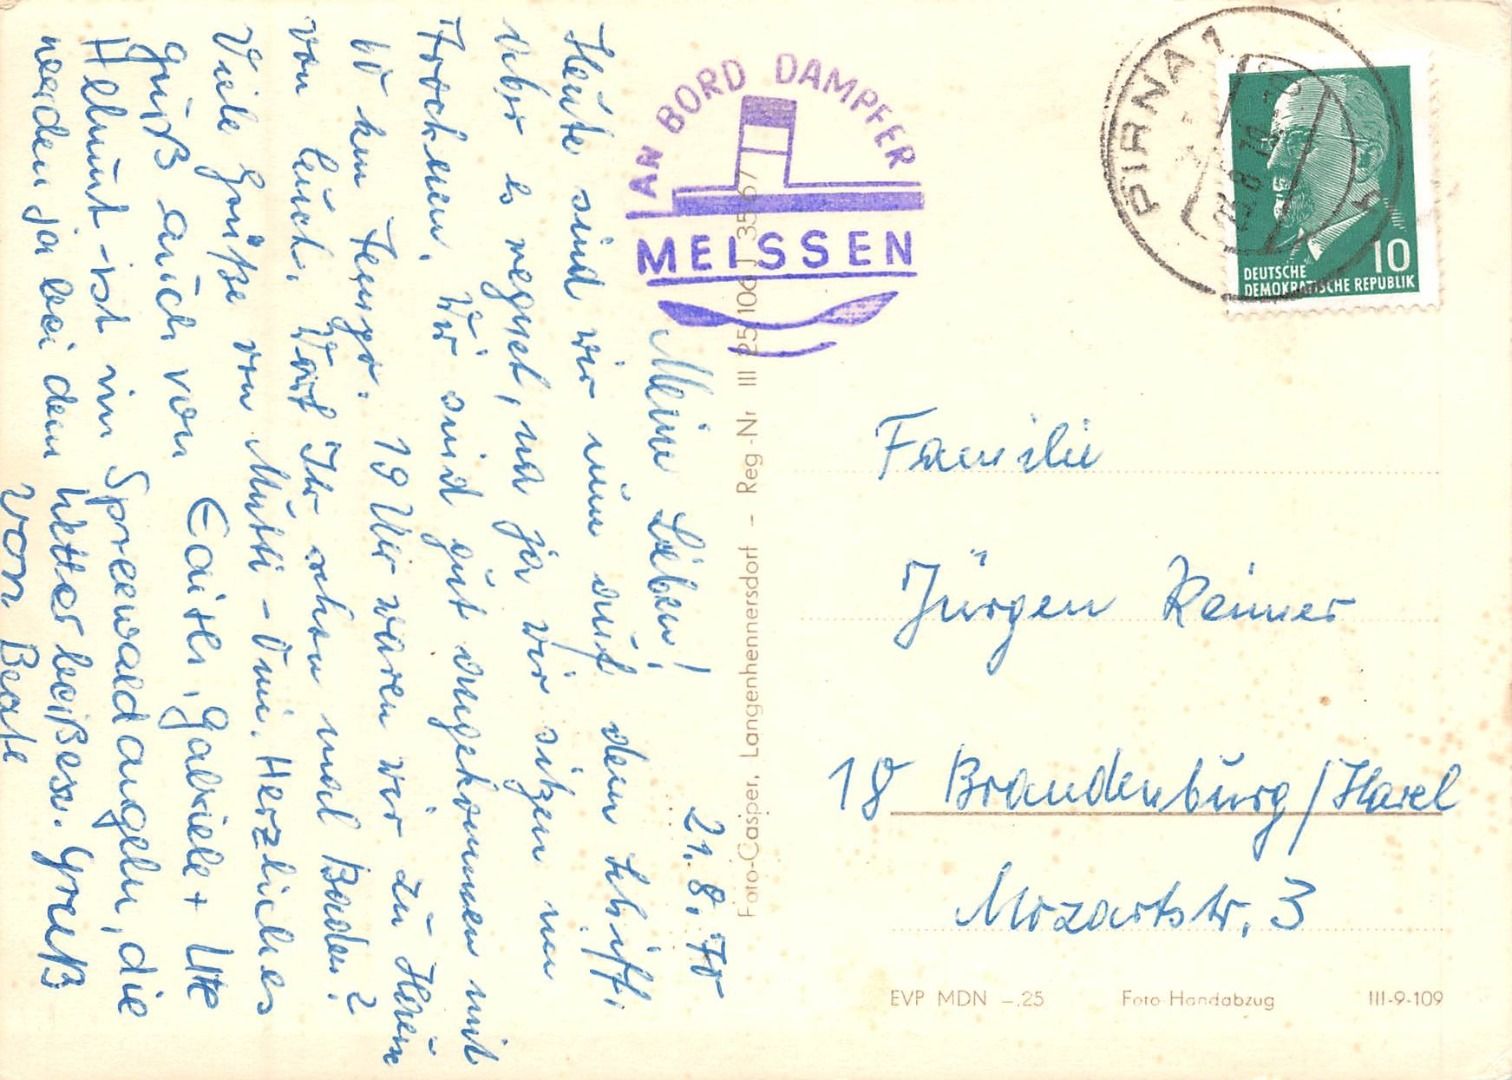 21.8.70
Meine Lieben!
Heute sind wir nun auf dem Schiff,
aber es regnet, na ja wir sitzen im
Trocknen. Wir sind gut angekommen mit
60 km Tempo. 19 Uhr waren wir zu Hause
von Euch. Wart Ihr schon mal Baden?
Viele Grüße von Mutti - Omi. Herzliches
Gruß auch von Edith, Gabriele + Utte
Helmut - ist im Spreewald angeln, die
werden ja bei dem Wetter beißen. Gruß
von Beate
AN BORD DAMPFER
MEISSEN
Foto-Casper, Langenhennersdorf - Reg.-Nr III 25 106 J 35 67
PIRNA 1
DEUTSCHE
DEMOKRATISCHE REPUBLIK
10
Familie
Jürgen Reimer
18 Brandenburg/Havel
Mozartstr. 3
EVP MDN -.25 Foto-Handabzug III-9-109